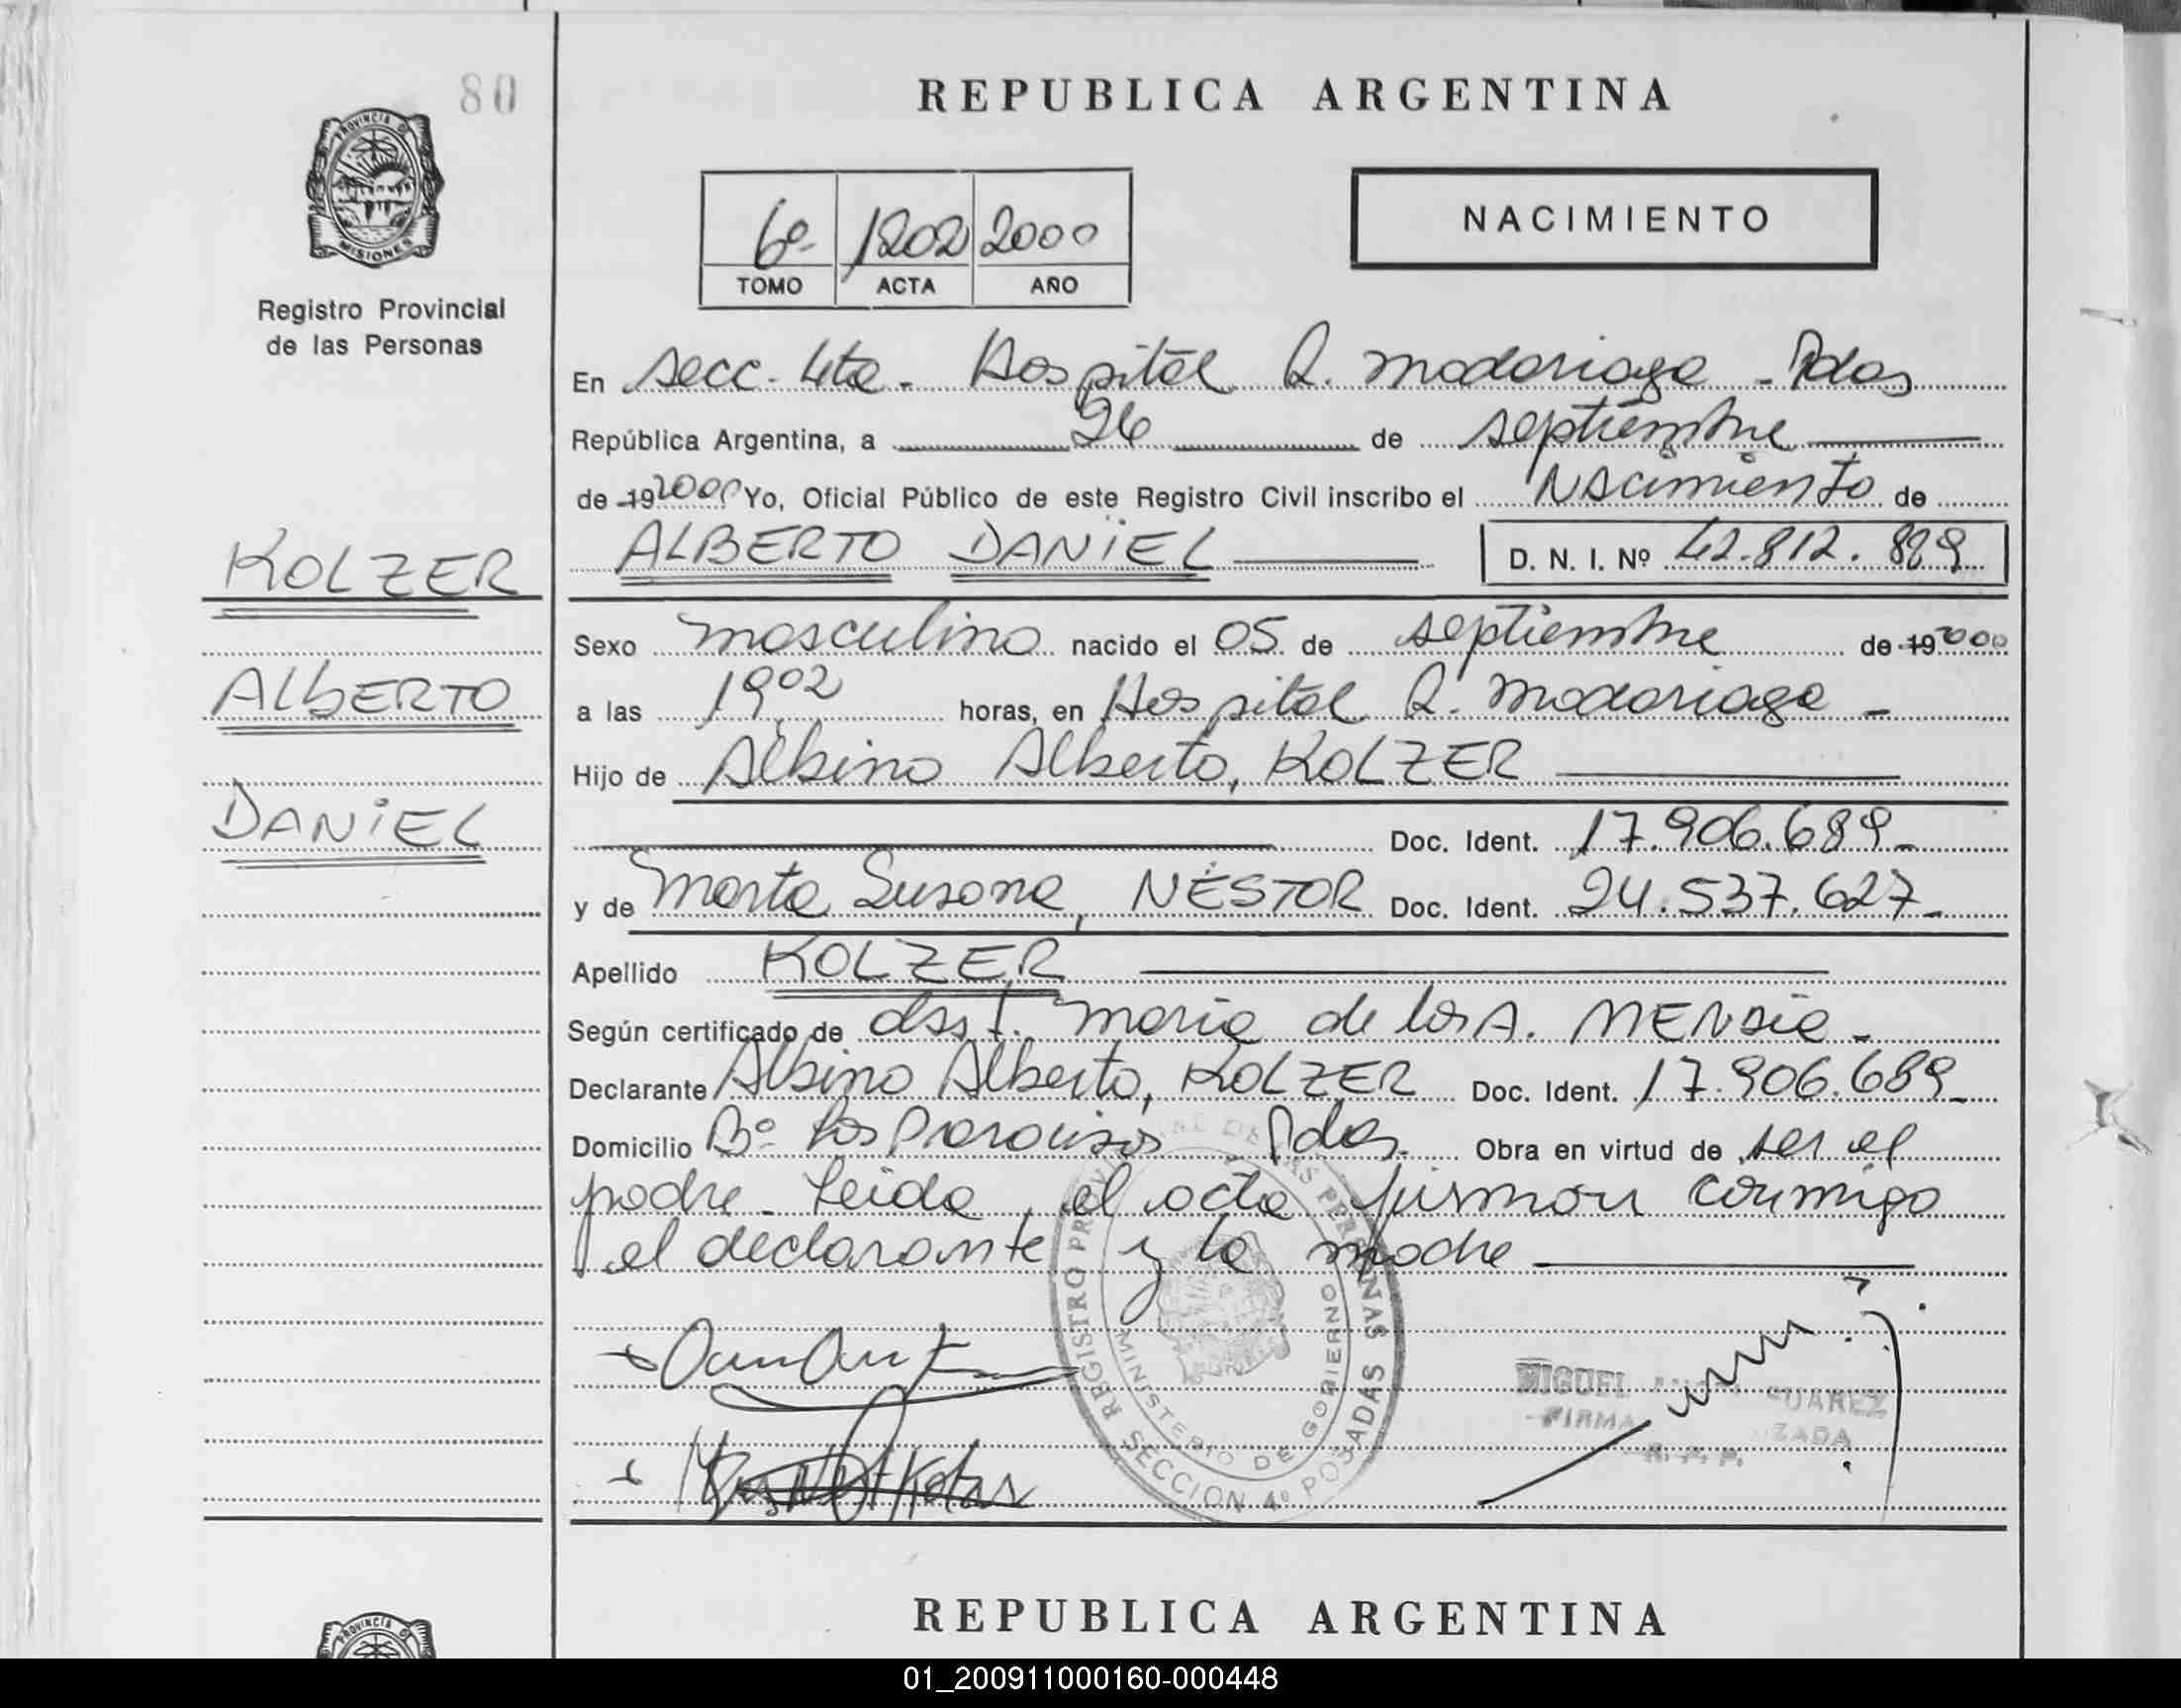 80
PROVINCIA DE
MISIONES
Registro Provincial
de las Personas
KOLZER
ALBERTO
DANIEL
REPUBLICA ARGENTINA
6º 1202 2000
TOMO ACTA AÑO
NACIMIENTO
En secc. 4ta. Hospital R. Madariaga - Pdas
República Argentina, a 26 de septiembre
de 19 2000 Yo, Oficial Público de este Registro Civil inscribo el Nacimiento de
ALBERTO DANIEL D. N. I. Nº 42.812.829
Sexo masculino nacido el 05 de septiembre de 19 2000
a las 19,02 horas, en Hospital R. Madariaga -
Hijo de Albino Alberto, KOLZER
Doc. Ident. 17.906.689-
y de Marta Susana, NÉSTOR Doc. Ident. 24.537.627-
Apellido KOLZER
Según certificado de María de los A. -
Declarante Albino Alberto, KOLZER Doc. Ident. 17.906.689-
Domicilio Bº Los Paraisos Pdas. Obra en virtud de ser el
padre. Leida el acta firman conmigo
el declarante y la madre
REGISTRO PROVINCIAL DE LAS PERSONAS
MINISTERIO DE GOBIERNO
SECCION 4º POSADAS
MIGUEL SUAREZ
FIRMA ZADA
R. P. P.
REPUBLICA ARGENTINA
PROVINCIA
01_200911000160-000448